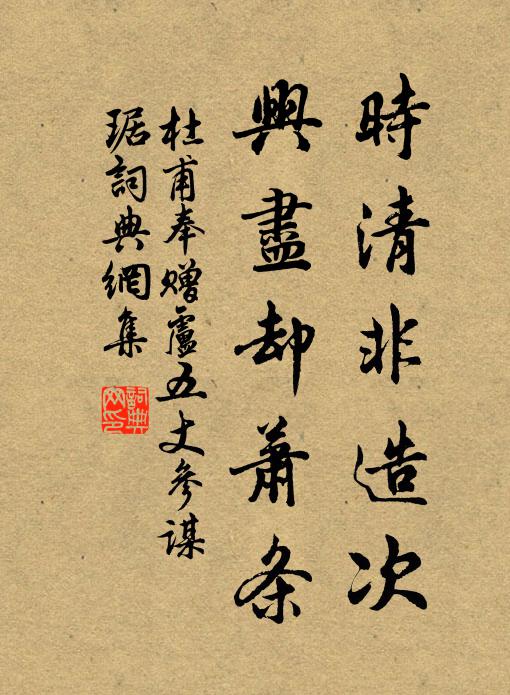 時清非造次
興盡却蕭条
杜甫奉赠盧五丈參谋
琚詞典網集
詞典
网印